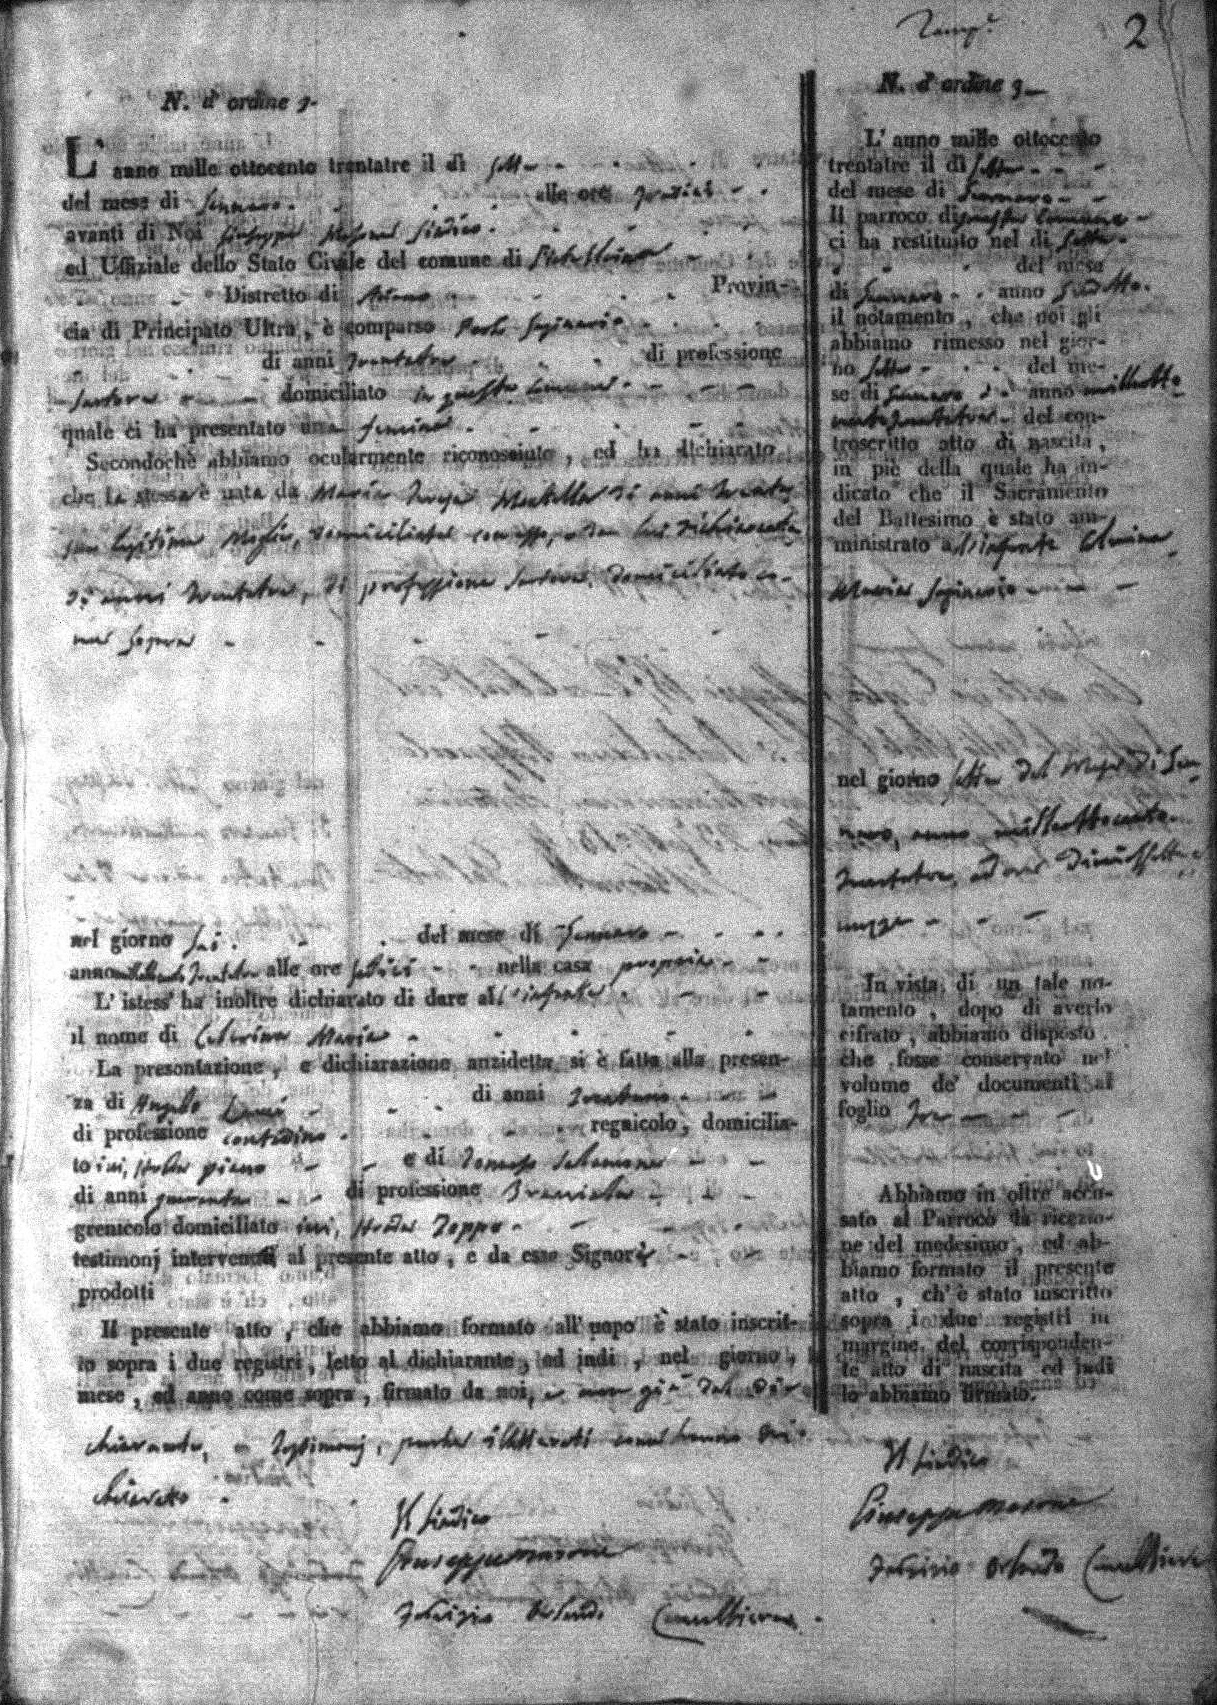 2
N. d' ordine 3.
L' anno mille ottocento trentatre il dì sette
del mese di Gennaro alle ore
avanti di Noi Giuseppe Masone Sindaco
ed Uffiziale dello Stato Civile del comune di
Distretto di Ariano Provin-
cia di Principato Ultra, è comparso Saginario
di anni trentatre di professione
sartore domiciliato in questo comune
quale ci ha presentato una femina
Secondochè abbiamo ocularmente riconosciuto, ed ha dichiarato
che la stessa è nata da Maria di anni trenta
sua legittima moglie, domiciliata con esso, e da lui dichiarante
di anni trentatre, di professione sartore domiciliato co-
me sopra
nel giorno sei del mese di Gennaro
anno alle ore sedici nella casa propria
L' istess' ha inoltre dichiarato di dare all'infante
il nome di Celerina Maria
La presentazione, e dichiarazione anzidetta si è fatta alla presen-
za di Angelo di anni trentuno
di professione contadino regnicolo, domicilia-
to ivi, strada piano e di Salomone
di anni quaranta di professione Bracciale
grenicolo domiciliato ivi, strada Zappa
testimonj intervenuti al presente atto, e da esse Signor
prodotti
Il presente atto, che abbiamo formato all' uopo è stato inscrit-
to sopra i due registri, letto al dichiarante, ed indi, nel giorno,
mese, ed anno come sopra, firmato da noi, e non già dal di-
chiarante, e Testimonj, perchè illetterati come hanno di-
chiarato
Il Sindaco
Giuseppe Masone
Fabrizio Orlando Cancelliere
N. d' ordine 3
L' anno mille ottocento
trentatre il dì sette
del mese di Gennaro
Il parroco di questo comune
ci ha restituito nel di sette
del mese
di Gennaro anno suddetto
il notamento, che noi gli
abbiamo rimesso nel gior-
no sette del me-
se di Gennaro anno milleotto
centotrentatre del con-
troscritto atto di nascita,
in piè della quale ha in-
dicato che il Sacramento
del Battesimo è stato am-
ministrato all'infante Celerina
Maria Saginario
nel giorno sette del mese di Gen-
naro, anno milleottocento
trentatre, ad ore diciassette e
mezza
In vista di un tale no-
tamento, dopo di averlo
cifrato, abbiamo disposto
che fosse conservato nel
volume de' documenti al
foglio tre
Abbiamo in oltre accu-
sato al Parroco la ricezio-
ne del medesimo, ed ab-
biamo formato il presente
atto, ch' è stato inscritto
sopra i due registri in
margine del corrisponden-
te atto di nascita ed indi
lo abbiamo firmato.
Il Sindaco
Giuseppe Masone
Fabrizio Orlando Cancelliere